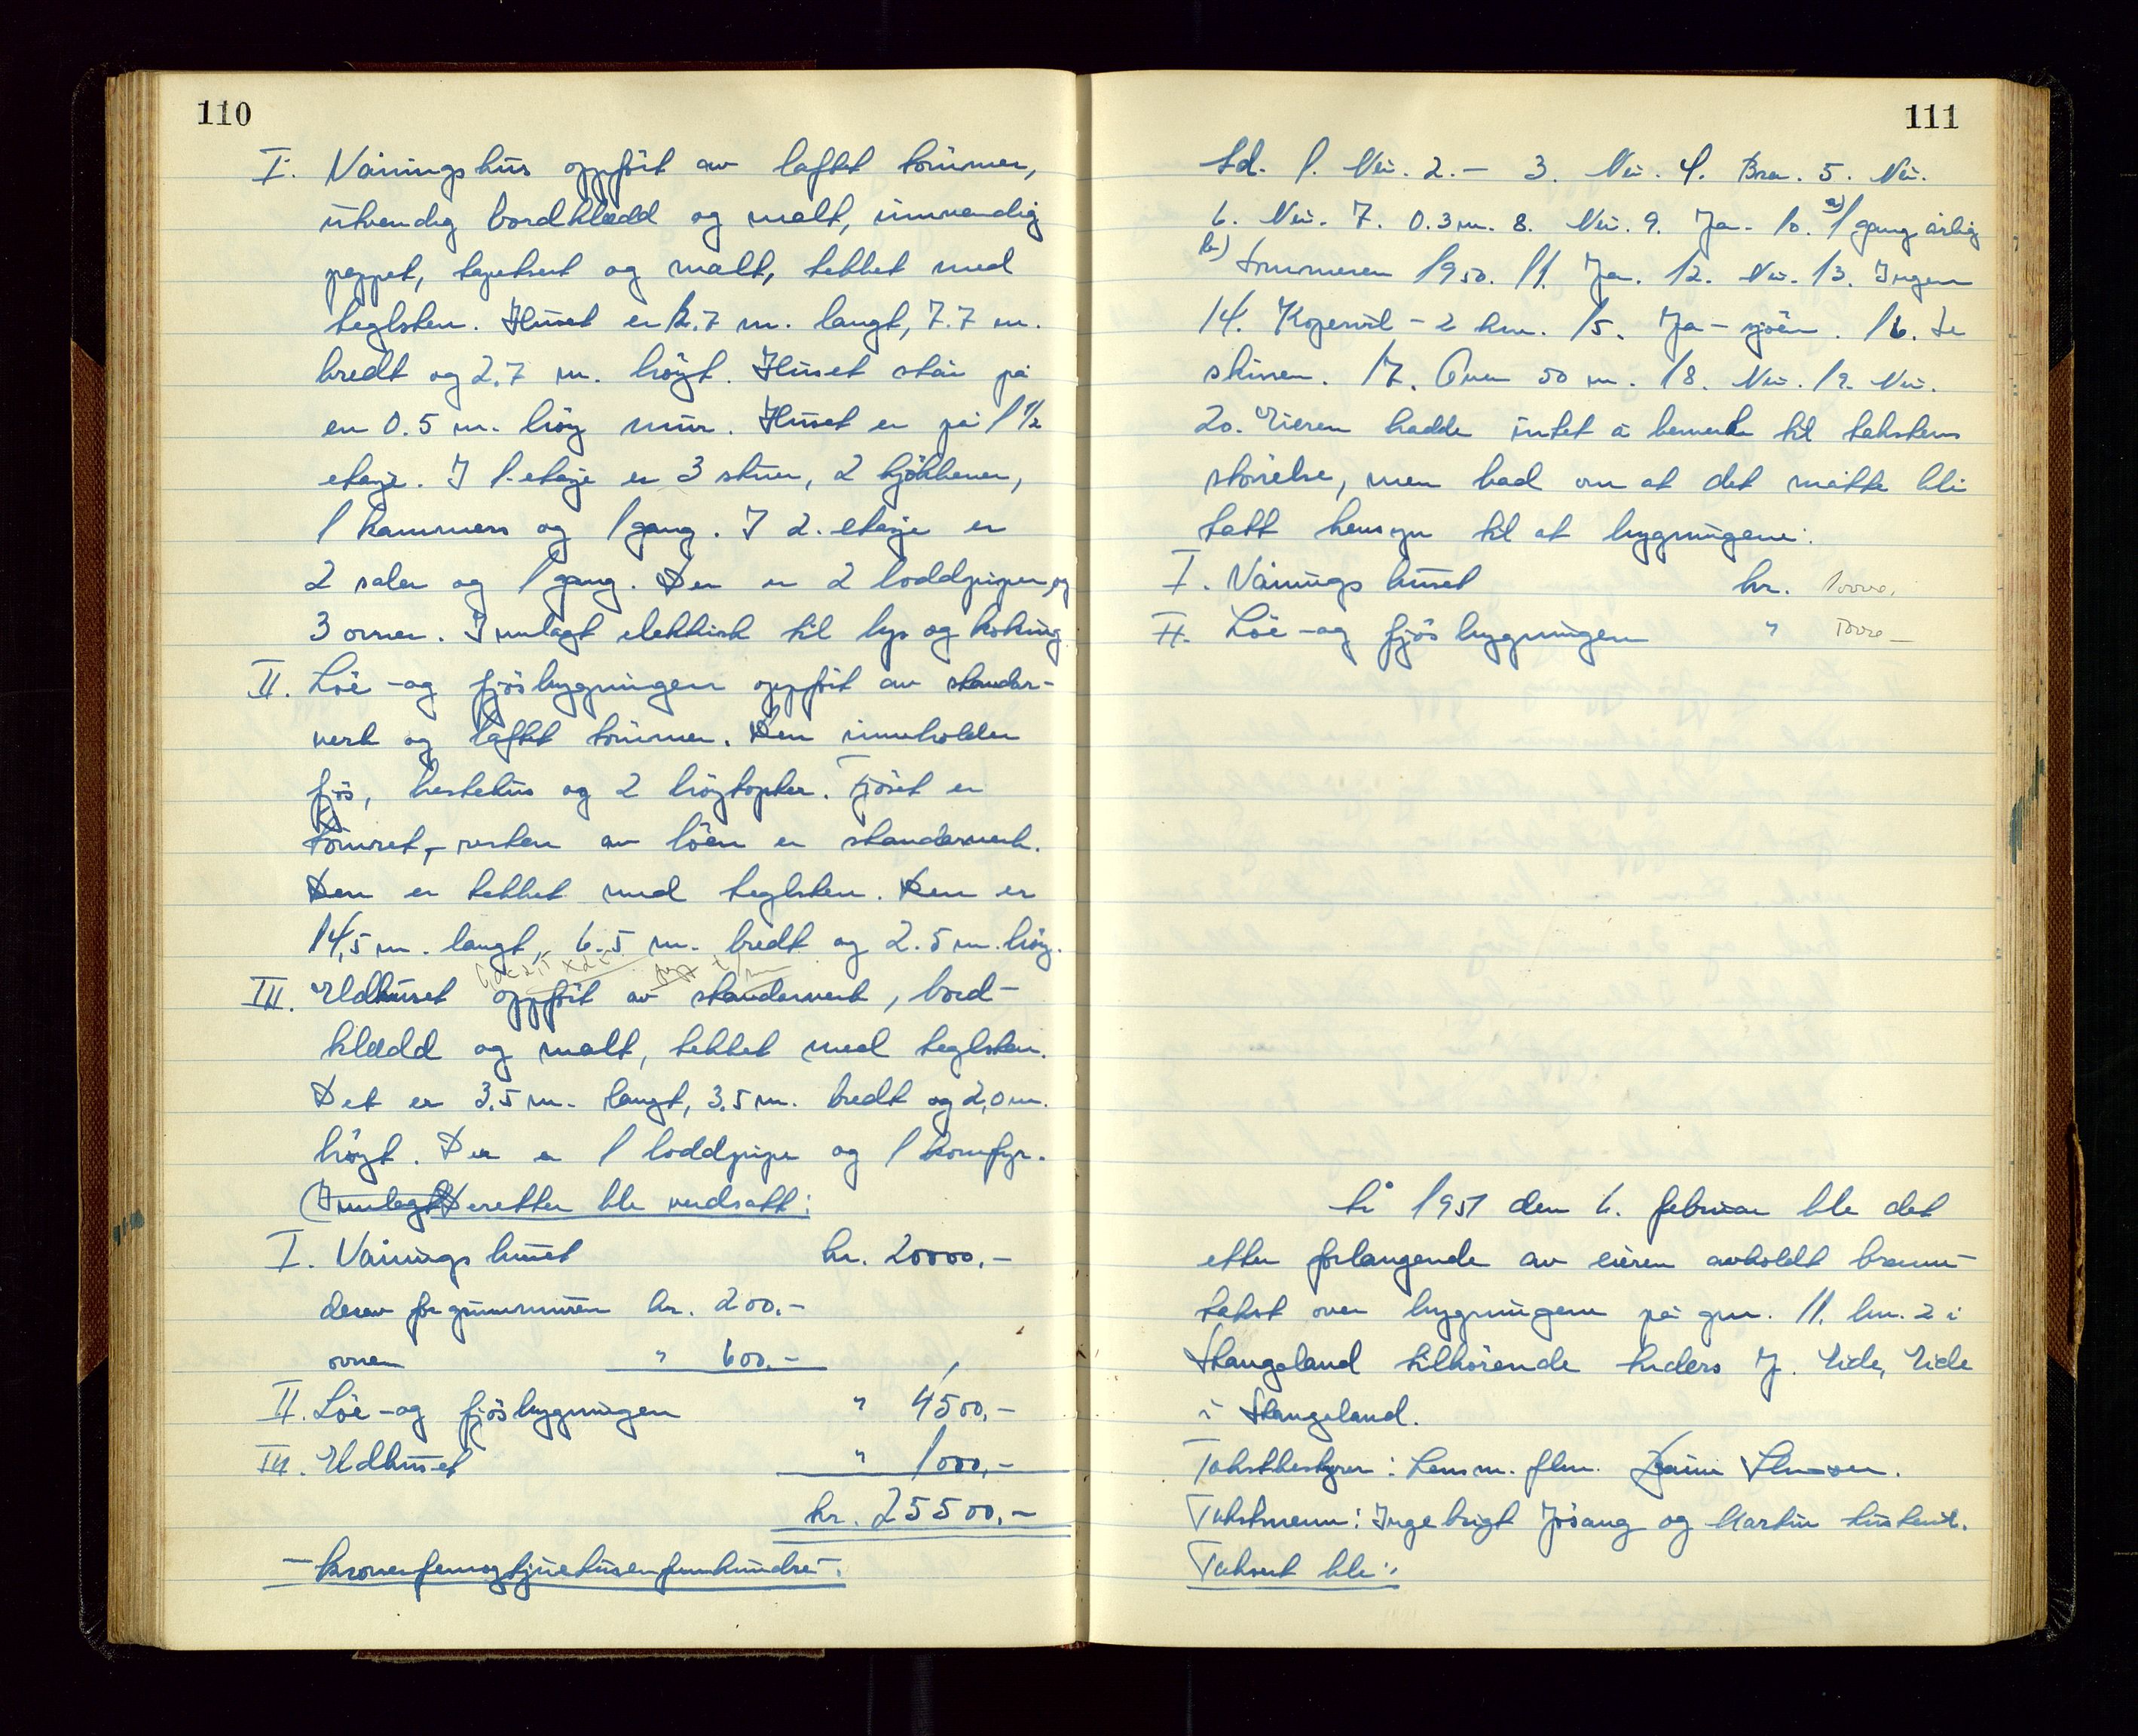 110
I. Våningshus oppført av laftet tømmer,
utvendig bordklædd og malt, innvendig
pappet, tapetsert og malt, tekket med
teglsten. Huset er 12.7 m. langt, 7.7 m.
bredt og 2.7 m. høyt. Huset står på
en 0.5 m. høy mur. Huset er på 1 1/2
etasje. I 1. etasje er 3 stuer, 2 kjøkkener,
1 kammers og 1 gang. I 2. etasje er
2 saler og 1 gang. Der er 2 loddpiper og
3 ovner. Innlagt elektrisk til lys og koking
II. Løe-og fjøsbygningen oppført av stender-
verk og laftet tømmer. Den inneholder
fjøs, hestehus og 2 høytopter. Fjøset er
tømret, resten av løen er standerverk.
Den er tekket med teglsten. Den er
14,5 m. langt, 6.5 m. bredt og 2.5 m. høy.
III. Eldhuset oppført av standerverk, bord-
klædd og malt, tekket med teglsten.
Det er 3.5 m. langt, 3.5 m. bredt og 2,0 m.
høyt. Der er 1 loddpipe og 1 komfyr.
(Innlagt Deretter ble verdsatt:
I. Våningshuset kr. 20000,-
derav for grunnmuren kr. 200.-
ovner " 600.-
II. Løe-og fjøsbygningen " 4500,-
III. Eldhuset " 1000,-
kr. 25500,-
- kronerfemogtjuetusenfemhundre -.
111
Sd. 1. Nei. 2. - 3. Nei. 4. Bra. 5. Nei.
6. Nei. 7. 0.3 m. 8. Nei. 9. Ja. 10. a) 1 gang årlig
b) Sommeren 1950. 11. Ja. 12. Nei. 13. Ingen
14. Kopervik - 2 km. 15. Ja - sjøen. 16. Se
skissen. 17. Over 50 m. 18. Nei. 19. Nei.
20. Eieren hadde intet å bemerke til takstens
størrelse, men bad om at det måtte bli
tatt hensyn til at bygningene:
I. Våningshuset kr. 10000,
II. Løe-og fjøsbygningen "
År 1951 den 6. februar ble det
etter forlangende av eieren avholdt brann-
takst over bygningene på gnr. 11. bnr. 2 i
Stangeland tilhørende Anders J. Eide, Eide
i Stangeland.
Takstbestyrer: Lensm. flm.
Takstmenn: Ingebrigt Jøsang og Martin
Taksert ble: